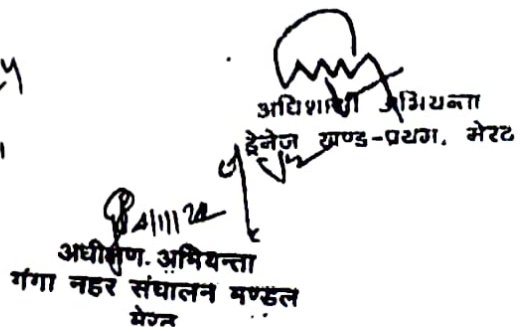 अधिशासी अभियन्ता
ड्रेनेज खण्ड-प्रथम, मेरठ
अधीक्षण अभियन्ता
गंगा नहर संचालन मण्डल
मेरठ